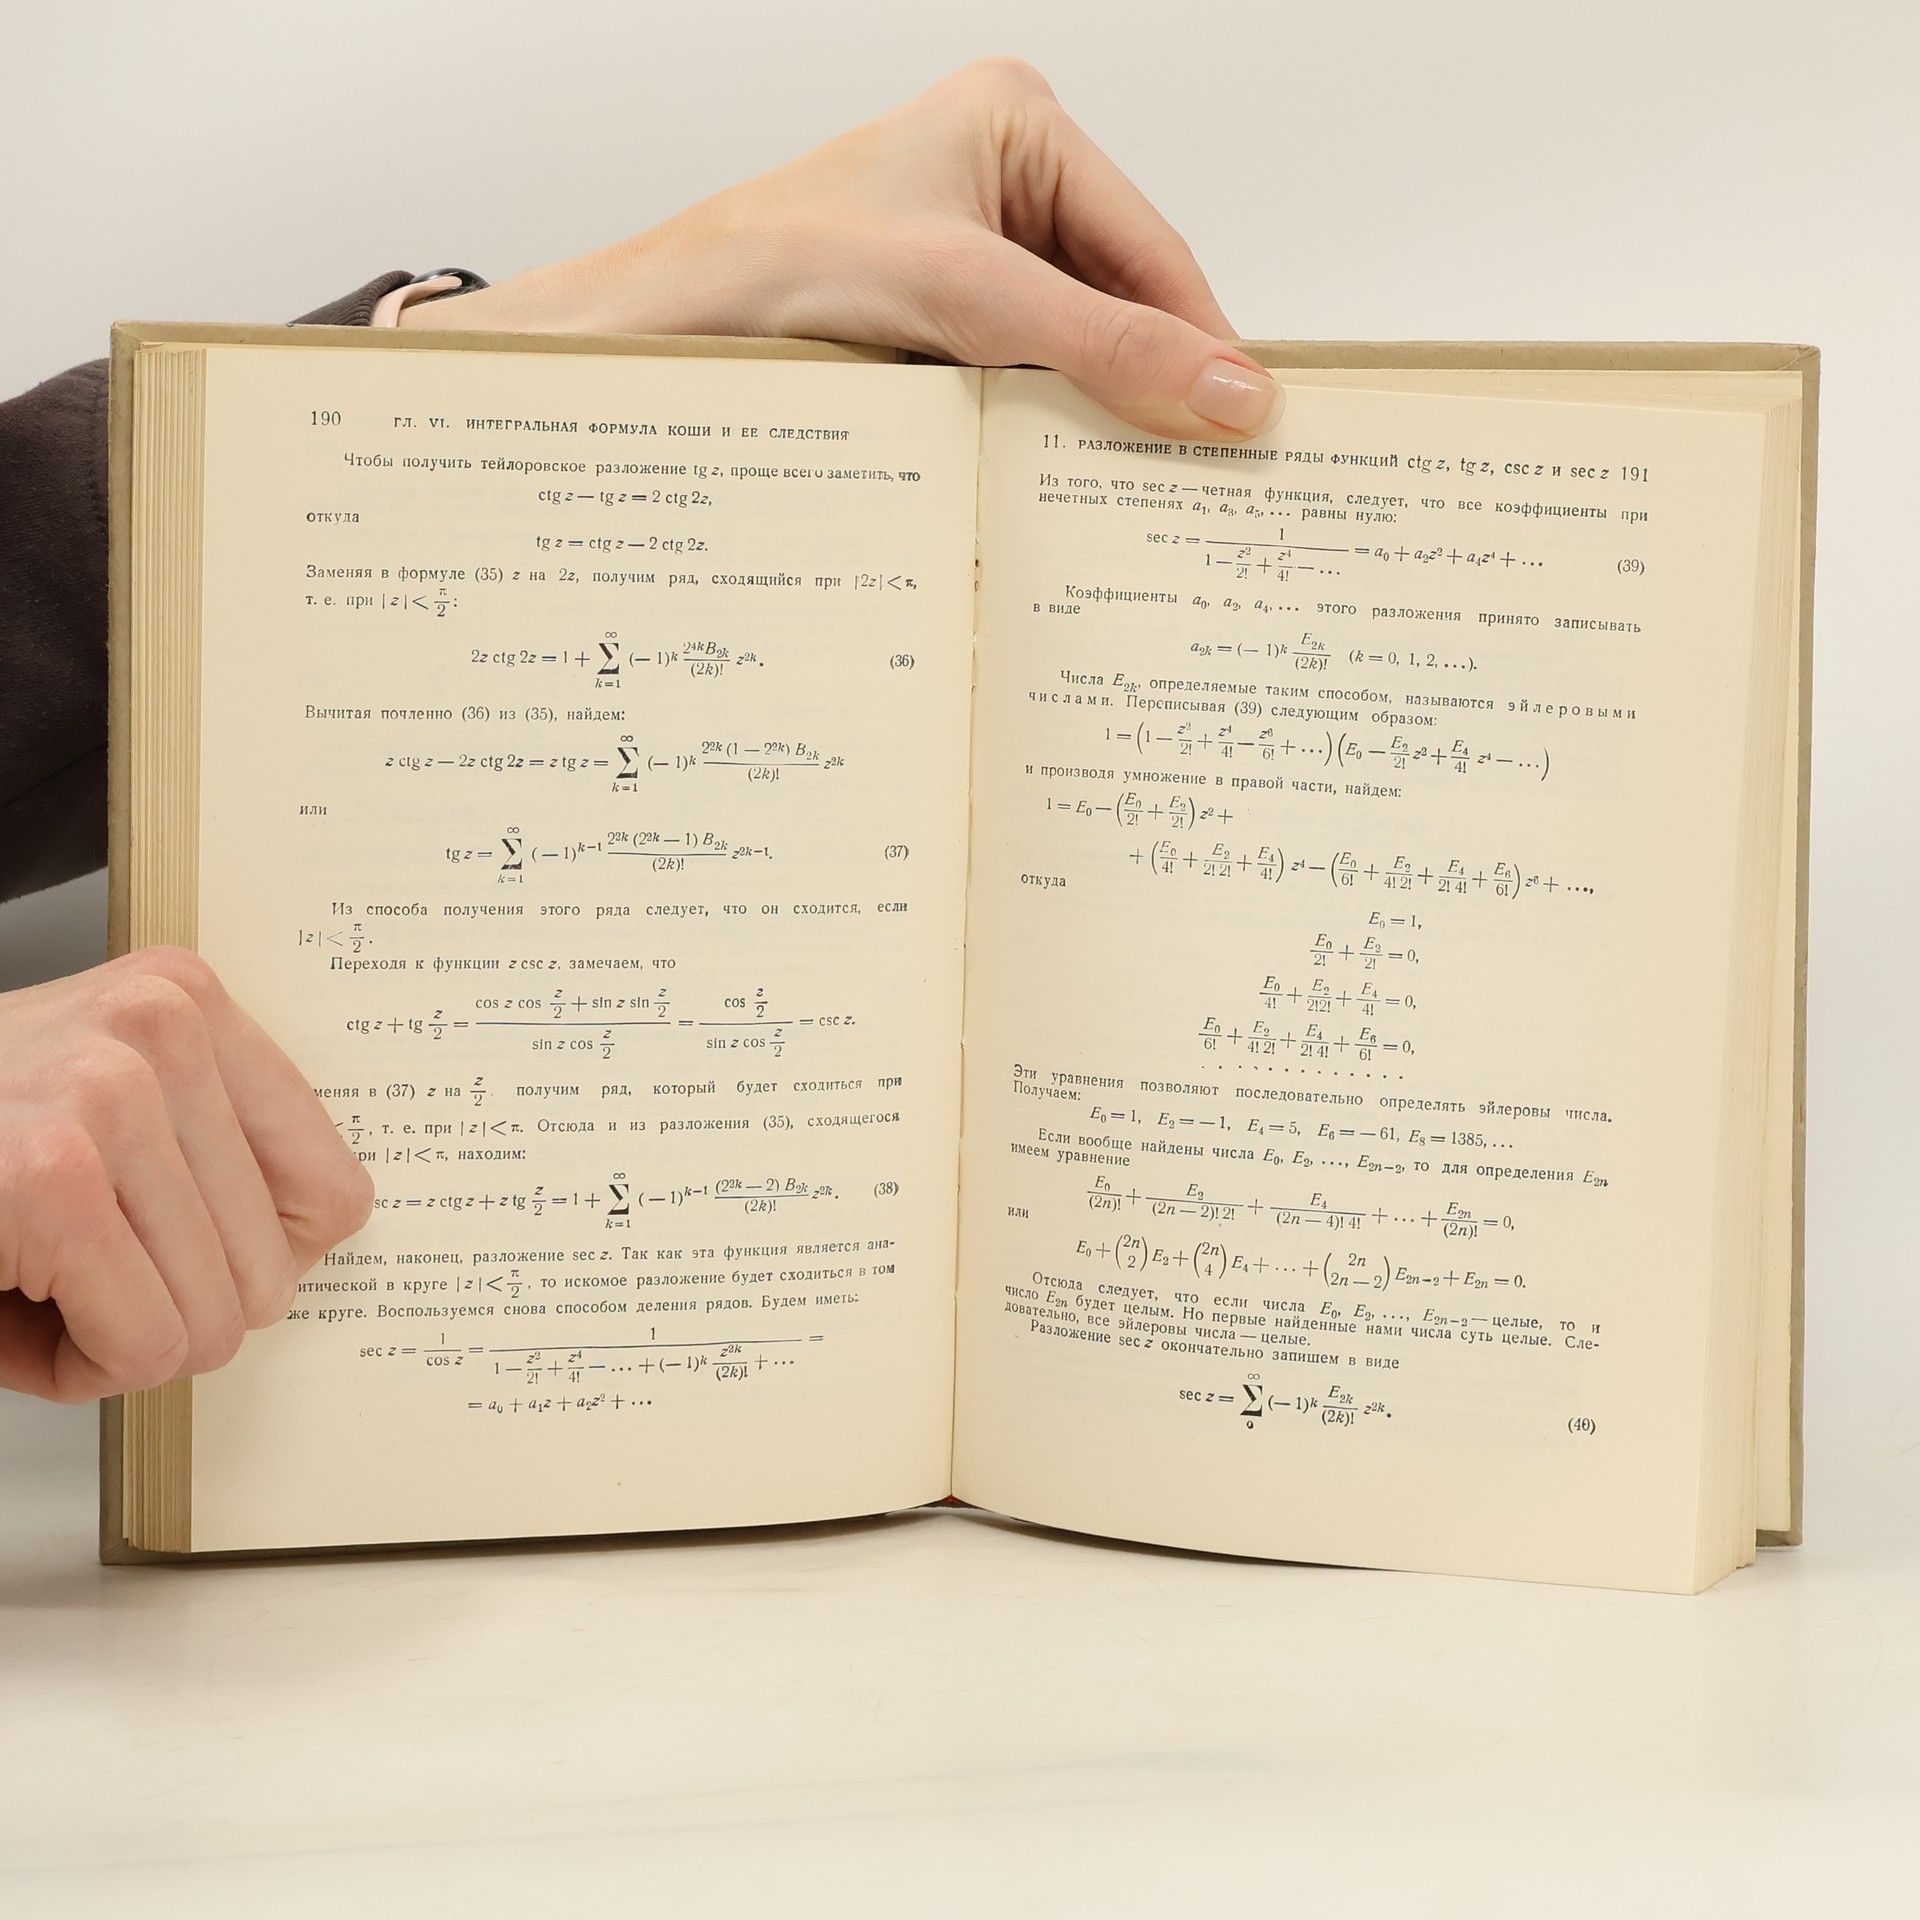 190 ГЛ. VI. ИНТЕГРАЛЬНАЯ ФОРМУЛА КОШИ И ЕЕ СЛЕДСТВИЯ
Чтобы получить тейлоровское разложение tg z, проще всего заметить, что
ctg z — tg z = 2 ctg 2z,
откуда
tg z = ctg z — 2 ctg 2z.
Заменяя в формуле (35) z на 2z, получим ряд, сходящийся при |2z| < π,
т. е. при | z | < π/2 :
2z ctg 2z = 1 + ∑_{k=1}^{∞} (— 1)^k 2^{4k}B_{2k}/(2k)! z^{2k}. (36)
Вычитая почленно (36) из (35), найдем:
z ctg z — 2z ctg 2z = z tg z = ∑_{k=1}^{∞} (— 1)^k 2^{2k} (1 — 2^{2k}) B_{2k}/(2k)! z^{2k}
или
tg z = ∑_{k=1}^{∞} (— 1)^{k-1} 2^{2k} (2^{2k} — 1) B_{2k}/(2k)! z^{2k-1}. (37)
Из способа получения этого ряда следует, что он сходится, если
|z| < π/2 .
Переходя к функции z csc z, замечаем, что
ctg z + tg z/2 = (cos z cos z/2 + sin z sin z/2)/(sin z cos z/2) = (cos z/2)/(sin z cos z/2) = csc z.
меняя в (37) z на z/2, получим ряд, который будет сходиться при
< π/2, т. е. при | z | < π. Отсюда и из разложения (35), сходящегося
ри | z | < π, находим:
sc z = z ctg z + z tg z/2 = 1 + ∑_{k=1}^{∞} (— 1)^{k-1} (2^{2k} — 2) B_{2k}/(2k)! z^{2k}. (38)
Найдем, наконец, разложение sec z. Так как эта функция является ана-
итической в круге | z | < π/2, то искомое разложение будет сходиться в том
же круге. Воспользуемся снова способом деления рядов. Будем иметь:
sec z = 1/cos z = 1/(1 — z²/2! + z⁴/4! — ... + (— 1)^k z^{2k}/(2k)! + ...) =
= a₀ + a₁z + a₂z² + ...
11. РАЗЛОЖЕНИЕ В СТЕПЕННЫЕ РЯДЫ ФУНКЦИЙ ctg z, tg z, csc z и sec z 191
Из того, что sec z — четная функция, следует, что все коэффициенты при
нечетных степенях a₁, a₃, a₅, ... равны нулю:
sec z = 1/(1 — z²/2! + z⁴/4! — ...) = a₀ + a₂z² + a₄z⁴ + ... (39)
Коэффициенты a₀, a₂, a₄, ... этого разложения принято записывать
в виде
a_{2k} = (— 1)^k E_{2k}/(2k)! (k = 0, 1, 2, ...).
Числа E_{2k}, определяемые таким способом, называются эйлеровыми
числами. Переписывая (39) следующим образом:
1 = (1 — z²/2! + z⁴/4! — z⁶/6! + ...) (E₀ — E₂/2! z² + E₄/4! z⁴ — ...)
и производя умножение в правой части, найдем:
1 = E₀ — (E₀/2! + E₂/2!) z² +
+ (E₀/4! + E₂/2! 2! + E₄/4!) z⁴ — (E₀/6! + E₂/4! 2! + E₄/2! 4! + E₆/6!) z⁶ + ...,
откуда
E₀ = 1,
E₀/2! + E₂/2! = 0,
E₀/4! + E₂/2!2! + E₄/4! = 0,
E₀/6! + E₂/4! 2! + E₄/2! 4! + E₆/6! = 0,
. . . . . . . . . . . .
Эти уравнения позволяют последовательно определять эйлеровы числа.
Получаем:
E₀ = 1, E₂ = — 1, E₄ = 5, E₆ = — 61, E₈ = 1385, ...
Если вообще найдены числа E₀, E₂, ..., E_{2n-2}, то для определения E_{2n}
имеем уравнение
E₀/(2n)! + E₂/(2n — 2)! 2! + E₄/(2n — 4)! 4! + ... + E_{2n}/(2n)! = 0,
или
E₀ + (2n 2) E₂ + (2n 4) E₄ + ... + (2n 2n — 2) E_{2n-2} + E_{2n} = 0.
Отсюда следует, что если числа E₀, E₂, ..., E_{2n-2} — целые, то и
число E_{2n} будет целым. Но первые найденные нами числа суть целые. Сле-
довательно, все эйлеровы числа — целые.
Разложение sec z окончательно запишем в виде
sec z = ∑_{0}^{∞} (— 1)^k E_{2k}/(2k)! z^{2k}. (40)